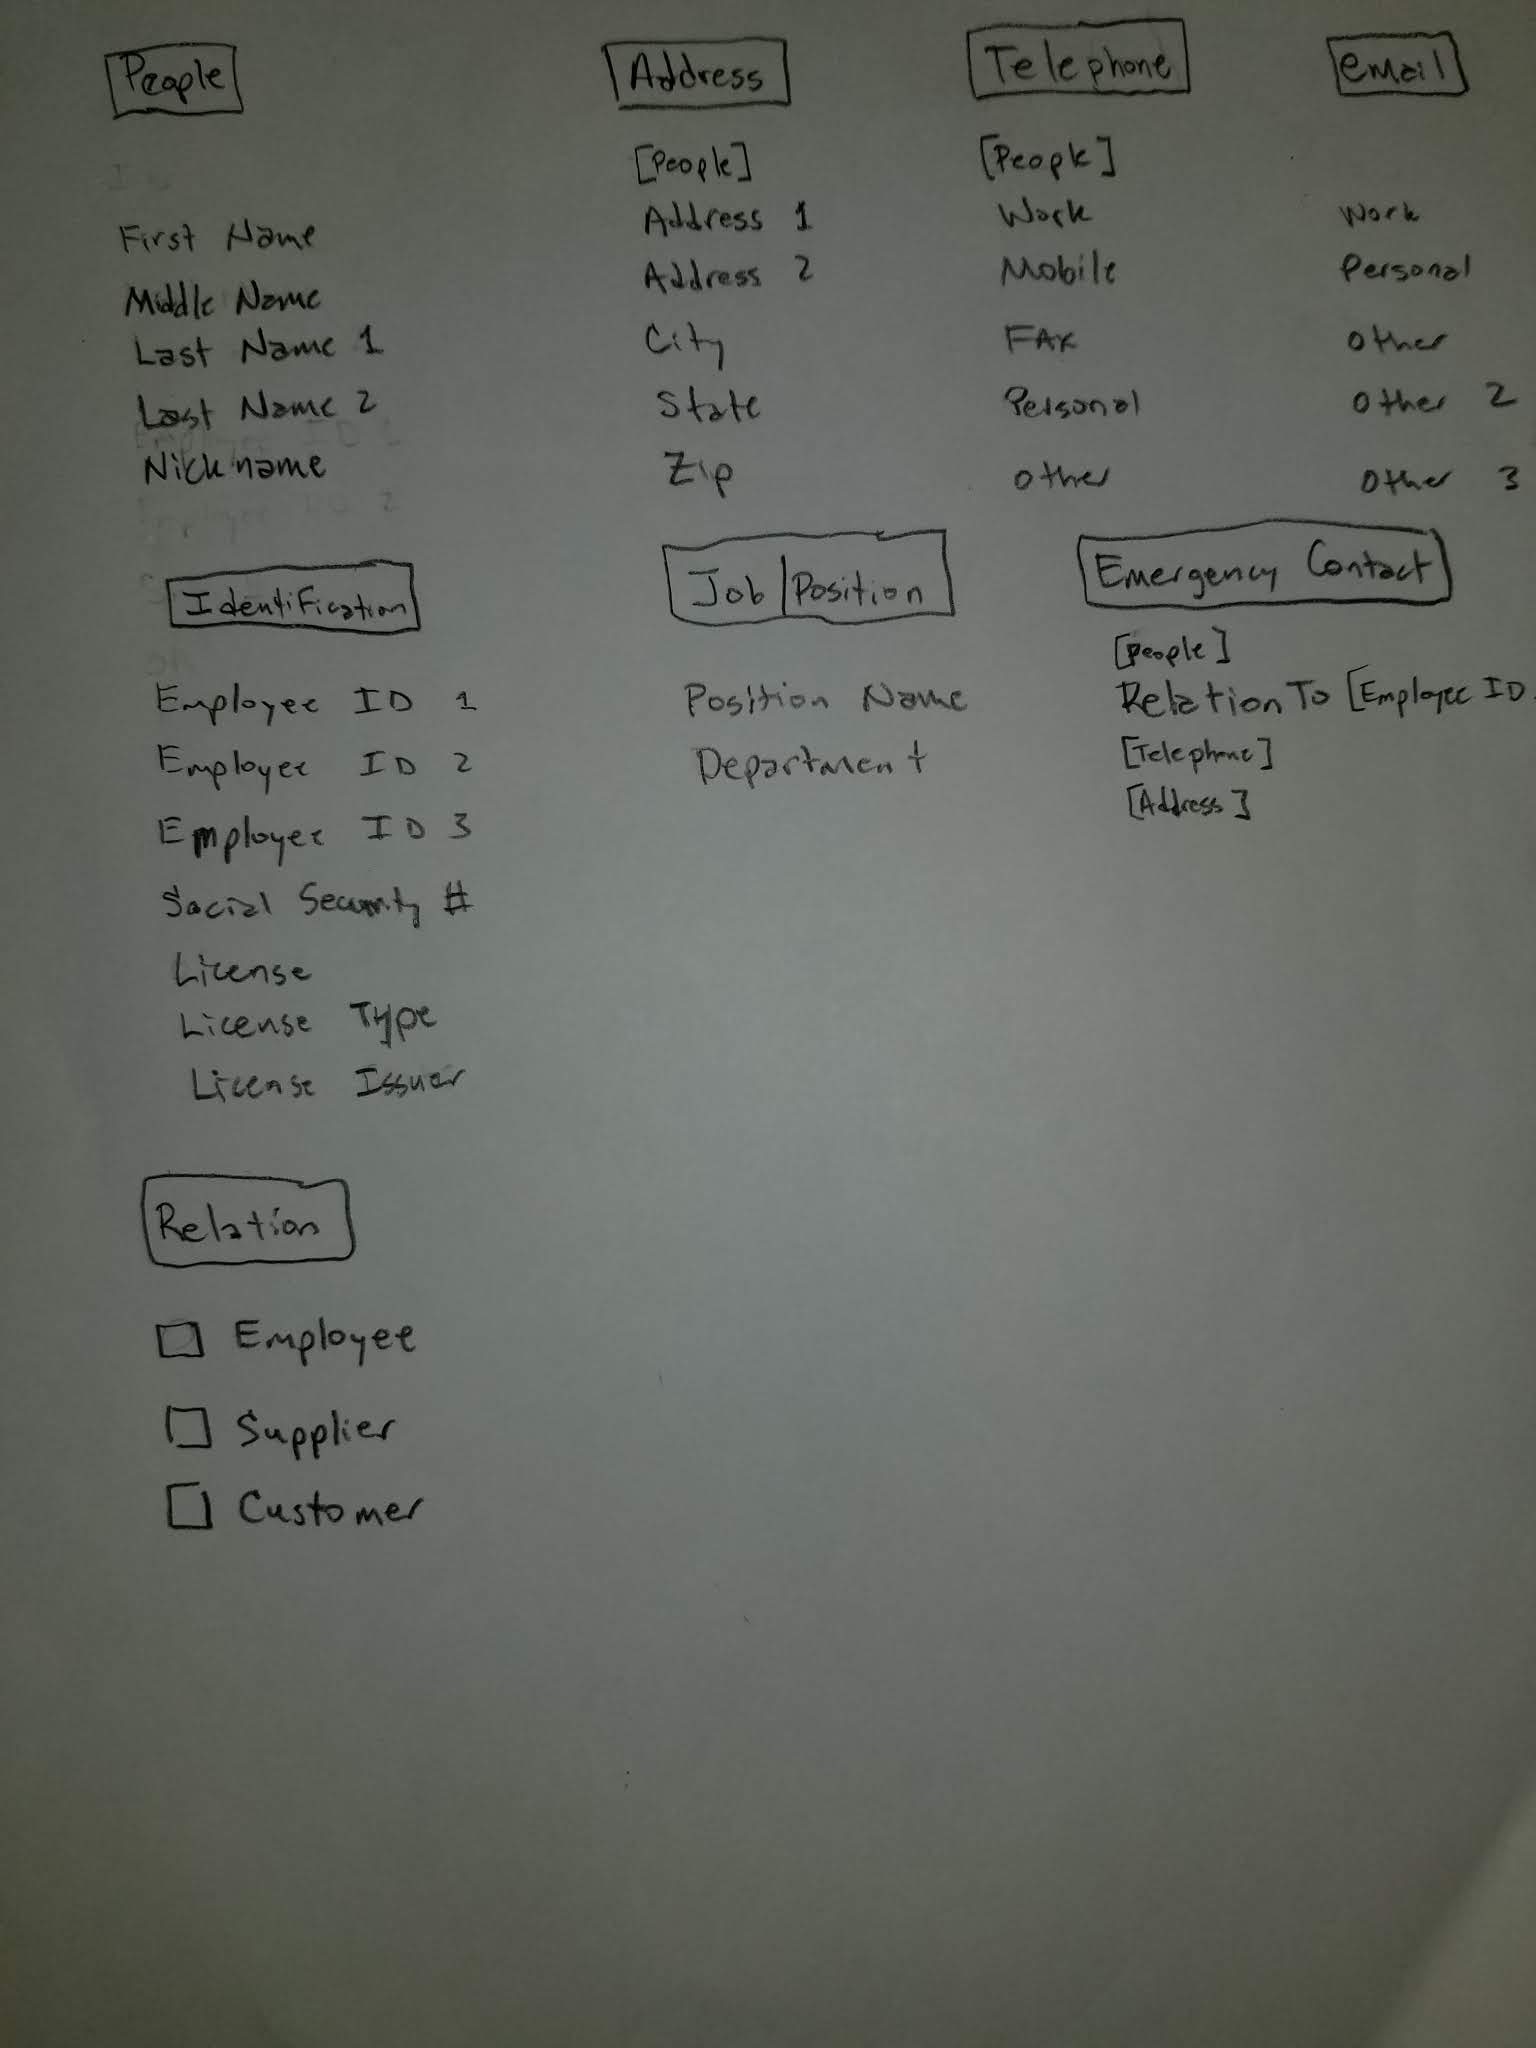 People
First Name
Middle Name
Last Name 1
Last Name 2
Nickname
Address
[People]
Address 1
Address 2
City
State
Zip
Telephone
[People]
Work
Mobile
FAX
Personal
other
email
work
Personal
other
other 2
other 3
Identification
Employee ID 1
Employee ID 2
Employee ID 3
Social Security #
License
License Type
License Issuer
Job/Position
Position Name
Department
Emergency Contact
[People]
Relation To [Employee ID
[Telephone]
[Address]
Relation
Employee
Supplier
Customer